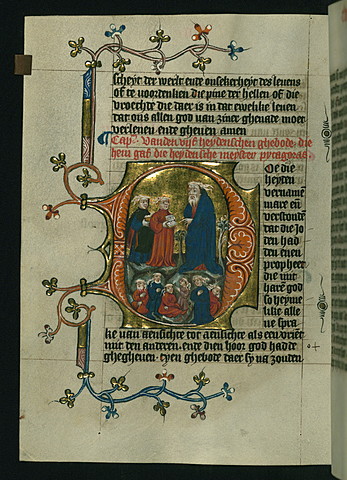 scheyt der werlt ende onsekerheyt des levens
oft te voordenken die pine der hellen oft die
vrochte die daer is in dat ewelike leven
dat ons allen god van zinre ghenade moet
verlenen ende gheven amen
Cap. van den vijf heydenschen ghebode: die
hem gaf die heydensche meester pytagoras.
Oe die
heyden
vernamē
mare en̄
verstonde
dat die Jo
den had
den enen
propheet
die met
harē god
so heyme
like alle
ne spra
ke van aensichte tot aensichte als een vrient
met den anderen. ende dien hoer god hadde
ghegheven. tyen ghebode daer sy na zouden